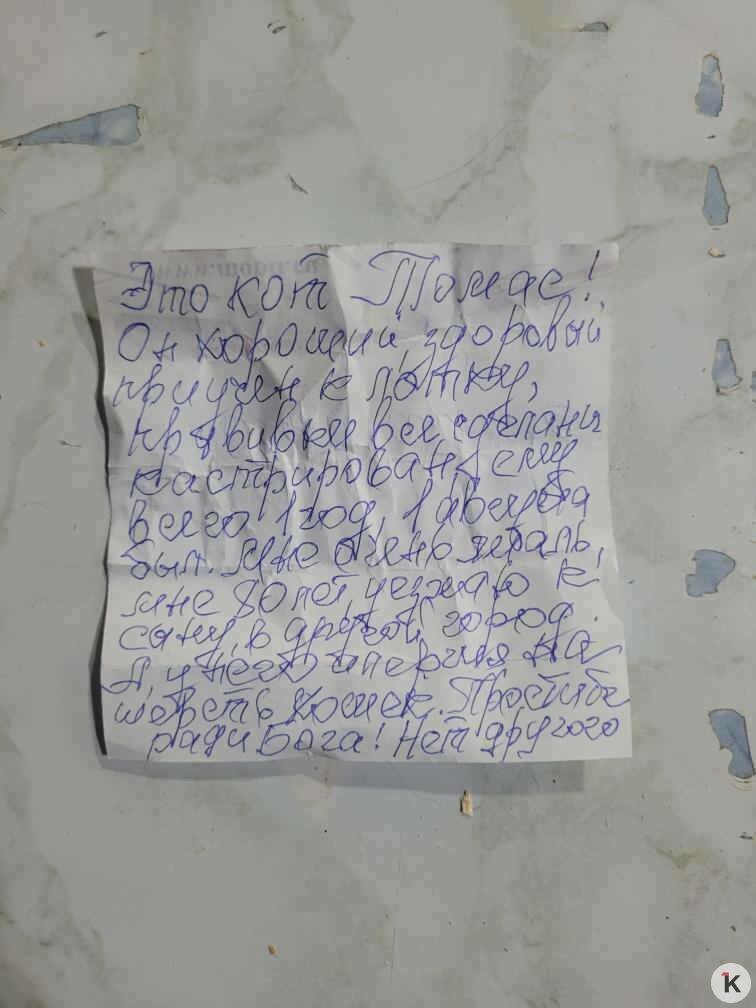 Это кот Томас!
Он хороший здоровый
приучен к лотку,
прививки все сделаны
кастрирован, ему
всего 1 год, 1 августа
был. Мне очень жаль,
мне 80 лет уезжаю к
сыну, в другой город.
А у него алергия на
шерсть кошек. Простите
ради Бога! Нет другого
K